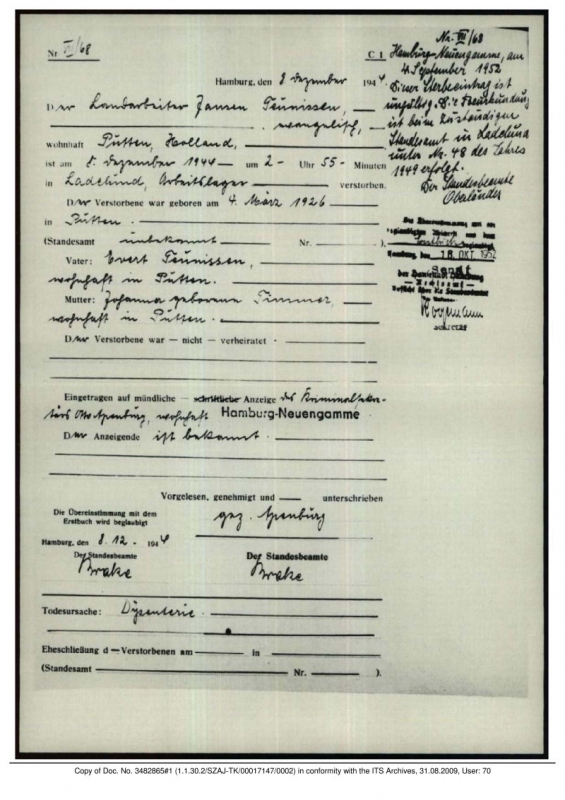 Nr. VII/68
C I
Hamburg, den 8. Dezember 1944
Der Landarbeiter Jansen Teunissen,
evangelisch,
wohnhaft Putten, Holland,
ist am 5. Dezember 1944 um 2 Uhr 55 Minuten
in Ladelund, Arbeitslager verstorben.
Der Verstorbene war geboren am 4. März 1926
in Putten.
(Standesamt unbekannt Nr. ).
Vater: Evert Teunissen,
wohnhaft in Putten.
Mutter: Johanna geborene Timmer,
wohnhaft in Putten.
Der Verstorbene war — nicht — verheiratet
Eingetragen auf mündliche — schriftliche Anzeige des Kriminalsekre-
tärs Otto Apenburg, wohnhaft Hamburg-Neuengamme
Der Anzeigende ist bekannt.
Vorgelesen, genehmigt und unterschrieben
gez. Apenburg
Die Übereinstimmung mit dem
Erstbuch wird beglaubigt
Hamburg, den 8.12. 1944
Der Standesbeamte
Brake
Der Standesbeamte
Brake
Todesursache: Dysenterie.
Eheschließung d — Verstorbenen am in
(Standesamt Nr. ).
Nr. VII/68
Hamburg-Neuengamme, am
4. September 1952
Dieser Sterbeeintrag ist
ungültig. Die Beurkundung
ist beim zuständigen
Standesamt in Ladelund
unter Nr. 48 des Jahres
1949 erfolgt.
Der Standesbeamte
Oberländer
Hamburg, den 18. OKT. 1952
Senat
der Hansestadt Hamburg
Sekretär
Copy of Doc. No. 3482865#1 (1.1.30.2/SZAJ-TK/00017147/0002) in conformity with the ITS Archives, 31.08.2009, User: 70